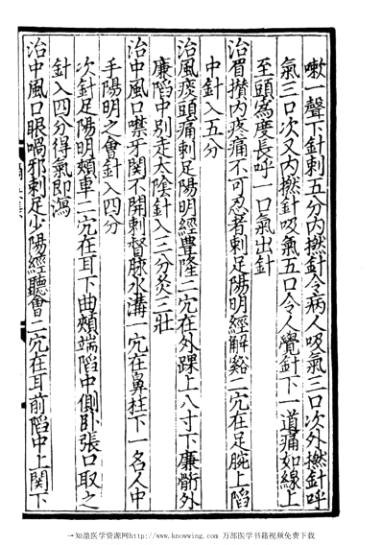 嗽一聲下針刺五分内撚針令病人吸氣三口次外撚針呼
氣三口次又内撚針吸氣五口令人覺針下一道痛如線上
至頭爲度長呼一口氣出針
治眉攢内疼痛不可忍者刺足陽明經解谿二穴在足腕上陷
中針入五分
治風痰頭痛刺足陽明經豊隆二穴在外踝上八寸下廉䯒外
廉陷中別走太陰針入三分灸三壯
治中風口噤牙關不開刺督脉水溝一穴在鼻柱下一名人中
手陽明之會針入四分
次針足陽明頰車二穴在耳下曲頰端陷中側卧張口取之
針入四分得氣即瀉
治中風口眼喎邪刺足少陽經聽會二穴在耳前陷中上關下
→知識医学资源网http://www.knowwing.com 万部医学书籍视频免费下载